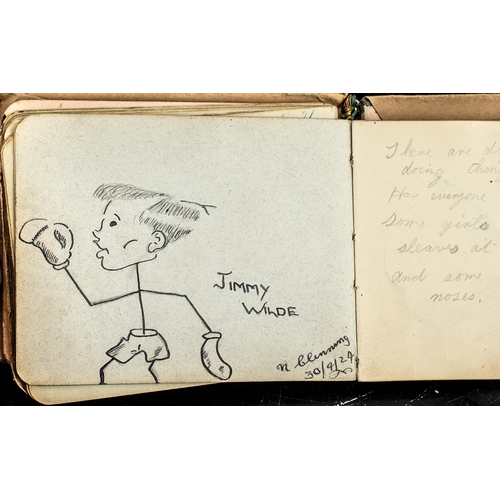 JIMMY
WILDE
N Clinning
30/4/29
There are
doing
Has everyone
Some girls
sleaves at
and some
noses.